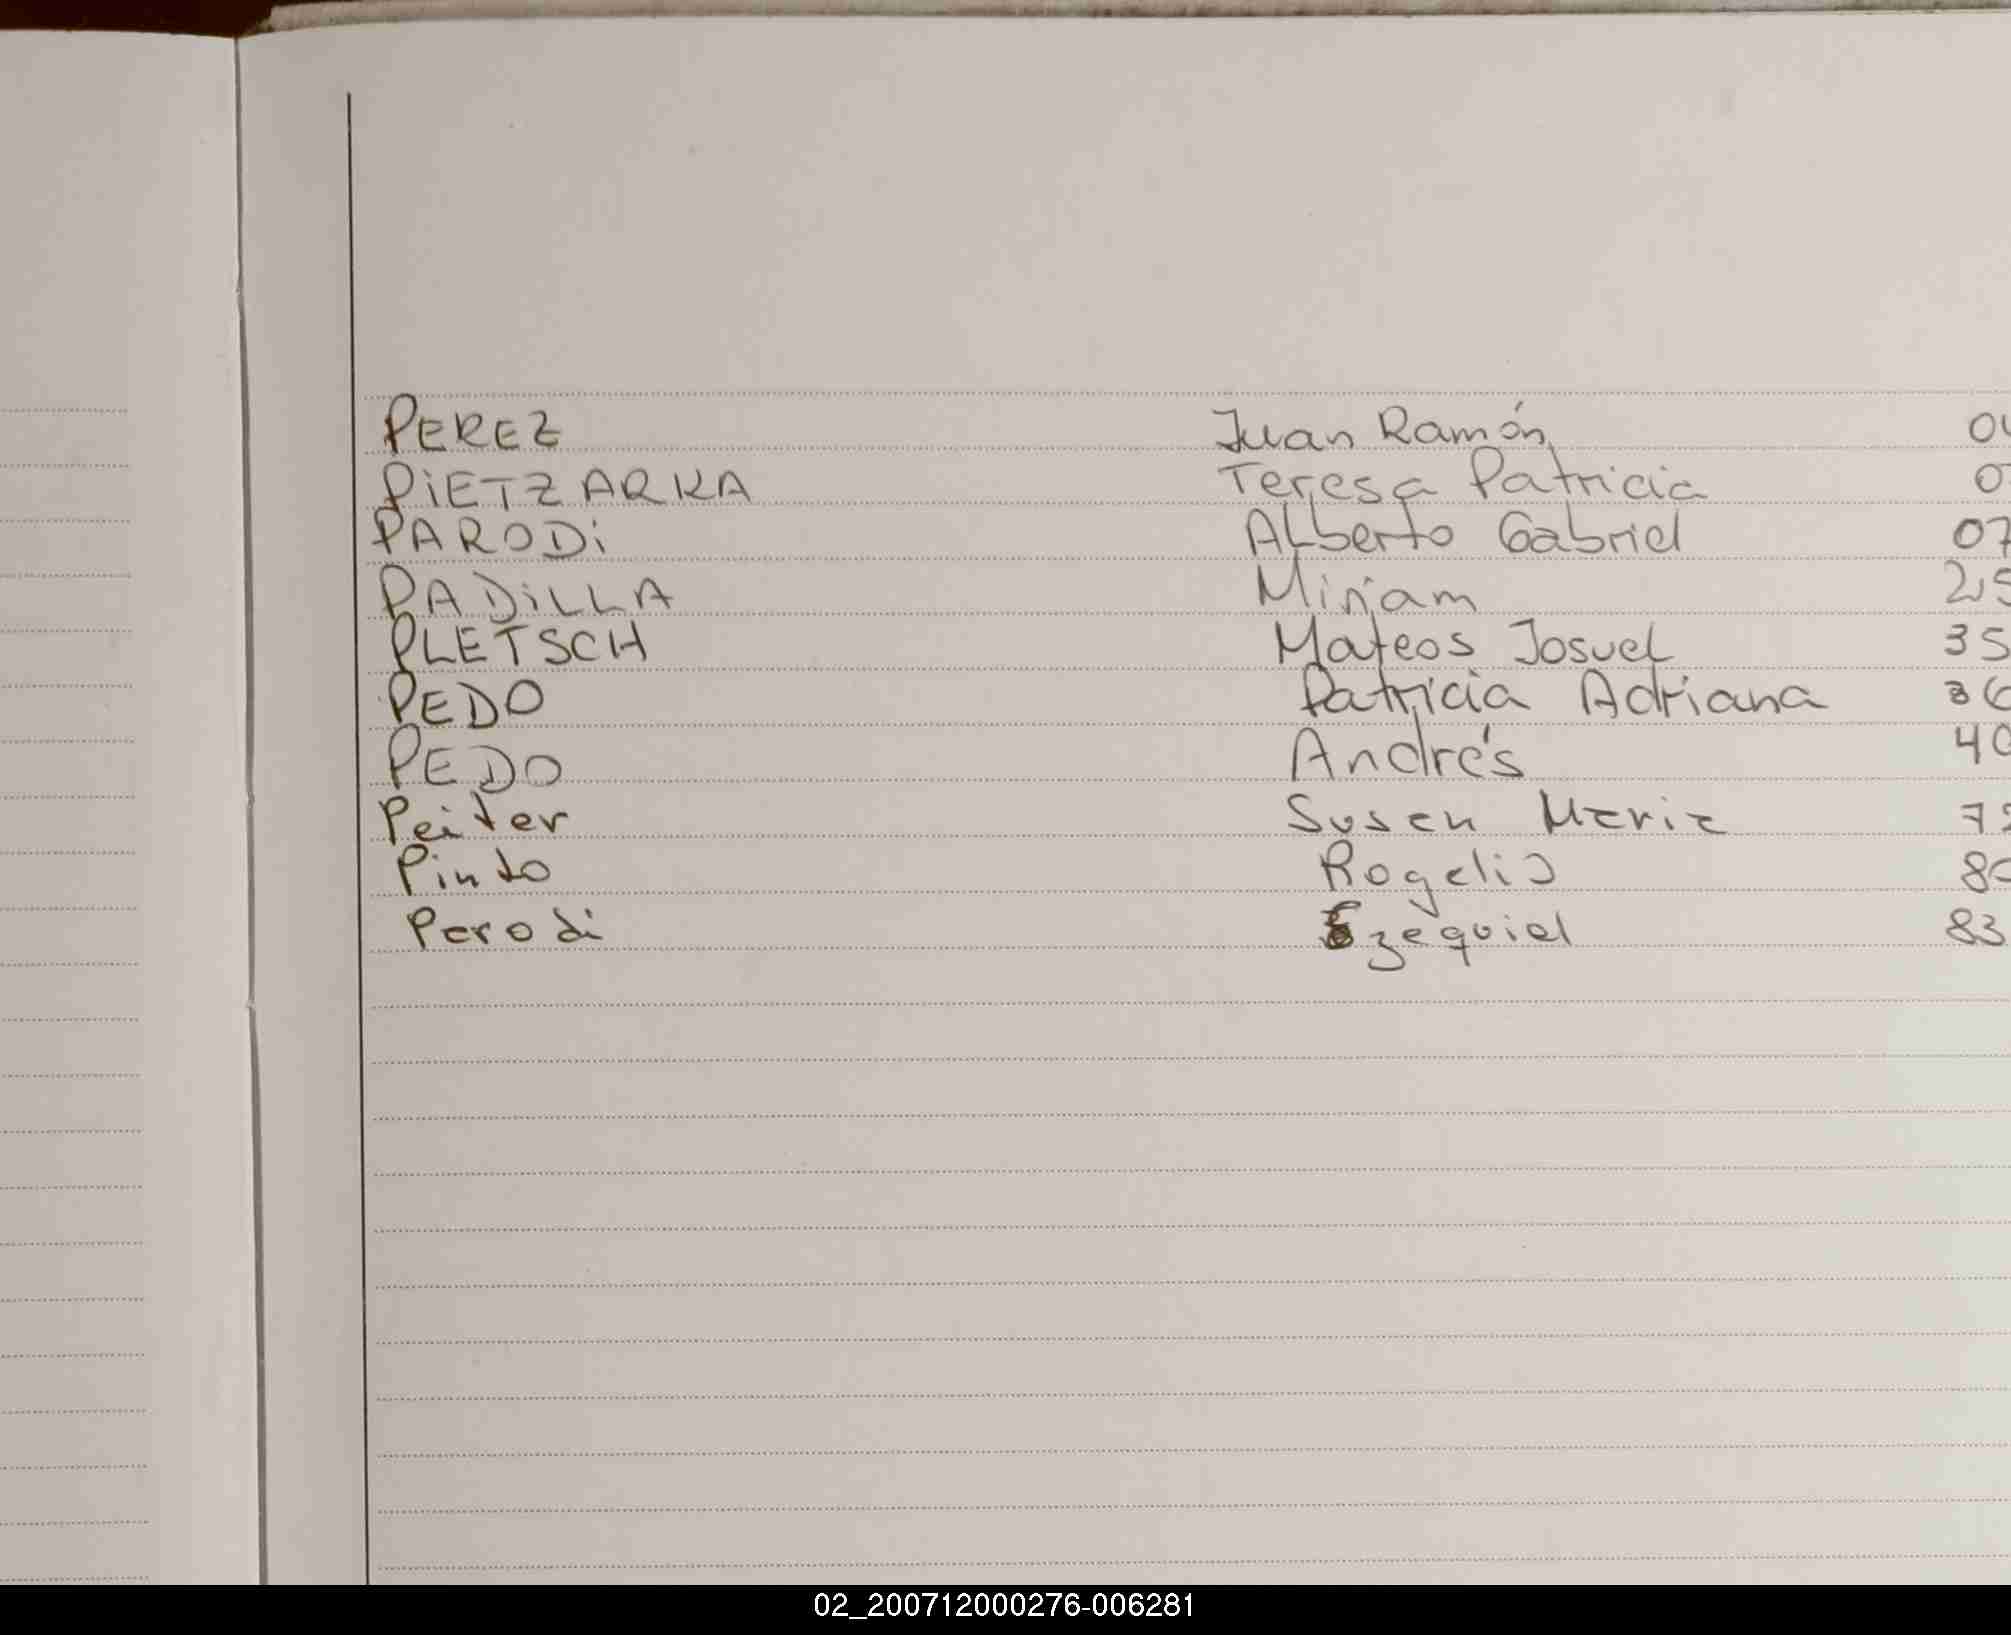 PEREZ Juan Ramón 04
PiETZARKA Teresa Patricia 0
PARODi ALberto Gabriel 07
PADiLLA Miriam 25
PLETSCH Mateos Josuel 35
PEDO Patricia Adriana 36
PEDO Andrés 40
Peiter Susan Maria 79
Pinto Rogelio 80
Parodi Ezequiel 83
02_200712000276-006281